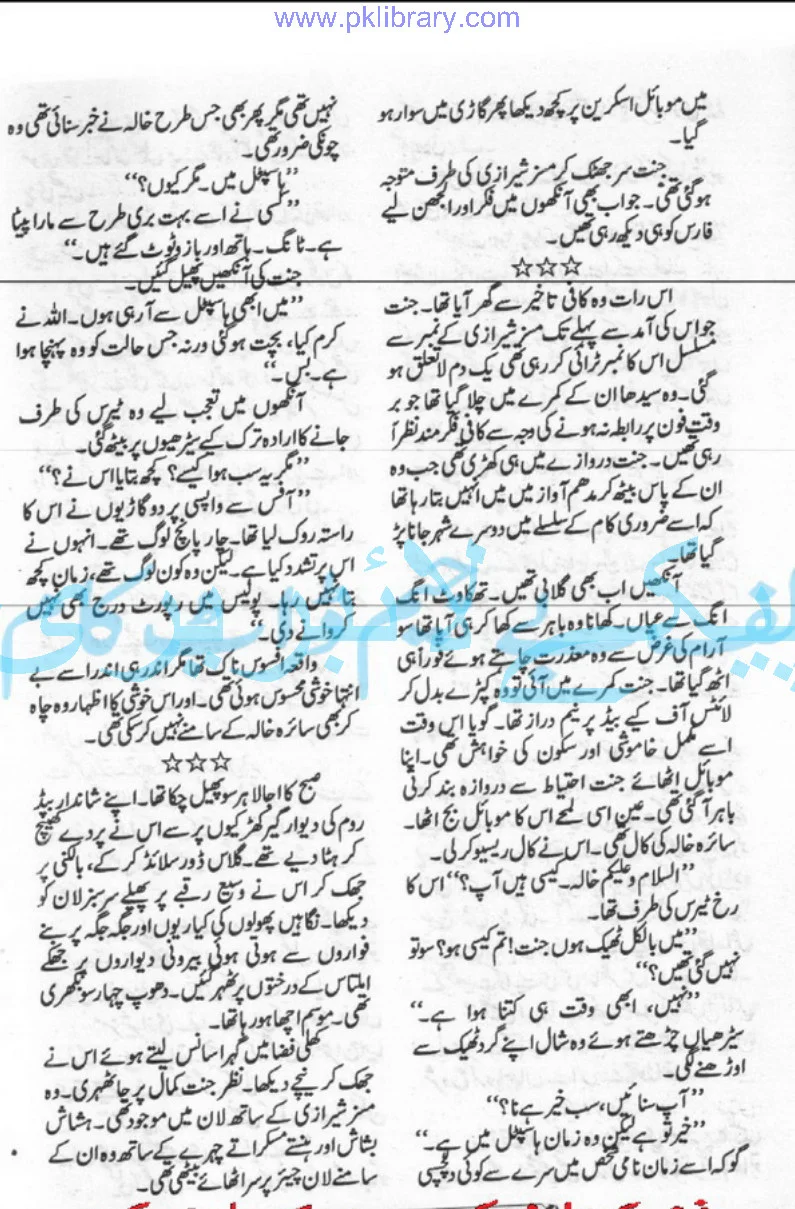 www.pklibrary.com
میں موبائل اسکرین پر کچھ دیکھا پھر گاڑی میں سوار ہو
گیا۔
جنت سر جھٹک کر مسز شیرازی کی طرف متوجہ
ہو گئی تھی۔ جو اب بھی آنکھوں میں فکر اور الجھن لیے
فارس کو ہی دیکھ رہی تھیں۔
☆☆☆
اس رات وہ کافی تاخیر سے گھر آیا تھا۔ جنت
جو اس کی آمد سے پہلے تک مسز شیرازی کے نمبر سے
مسلسل اس کا نمبر ٹرائی کر رہی تھی یک دم لا تعلق ہو
گئی۔ وہ سیدھا ان کے کمرے میں چلا گیا تھا جو بر
وقت فون پر رابطہ نہ ہونے کی وجہ سے کافی فکر مند نظر آ
رہی تھیں۔ جنت دروازے میں ہی کھڑی تھی جب وہ
ان کے پاس بیٹھ کر مدھم آواز میں میں انہیں بتا رہا تھا
کہ اسے ضروری کام کے سلسلے میں دوسرے شہر جانا پڑ
گیا تھا۔
آنکھیں اب بھی گلابی تھیں۔ تھکاوٹ انگ
انگ سے عیاں۔ کھانا وہ باہر سے کھا کر ہی آیا تھا سو
آرام کی غرض سے وہ معذرت چاہتے ہوئے فوراً ہی
اٹھ گیا تھا۔ جنت کمرے میں آئی تو وہ کپڑے بدل کر
لائٹس آف کیے بیڈ پر نیم دراز تھا۔ گویا اس وقت
اسے مکمل خاموشی اور سکون کی خواہش تھی۔ اپنا
موبائل اٹھائے جنت احتیاط سے دروازہ بند کرتی
باہر آ گئی تھی۔ عین اسی لمحے اس کا موبائل بج اٹھا۔
سائرہ خالہ کی کال تھی۔ اس نے کال ریسیو کر لی۔
”السلام وعلیکم خالہ۔ کیسی ہیں آپ؟“ اس کا
رخ ٹیرس کی طرف تھا۔
”میں بالکل ٹھیک ہوں جنت! تم کیسی ہو؟ سو تو
نہیں گئی تھیں؟“
”نہیں، ابھی وقت ہی کتنا ہوا ہے۔“
سیڑھیاں چڑھتے ہوئے وہ شال اپنے گرد ٹھیک سے
اوڑھنے لگی۔
”آپ سنائیں، سب خیر ہے نا؟“
”خیر تو ہے لیکن وہ زمان ہاسپٹل میں ہے۔“
گو کہ اسے زمان نامی شخص میں سرے سے کوئی دلچسپی
نہیں تھی مگر پھر بھی جس طرح خالہ نے خبر سنائی تھی وہ
چونکی ضرور تھی۔
”ہاسپٹل میں۔ مگر کیوں؟“
”کسی نے اسے بہت بری طرح سے مارا پیٹا
ہے۔ ٹانگ۔ ہاتھ اور بازو ٹوٹ گئے ہیں۔“
جنت کی آنکھیں پھیل گئیں۔
”میں ابھی ہاسپٹل سے آ رہی ہوں۔ اللہ نے
کرم کیا، بچت ہو گئی ورنہ جس حالت کو وہ پہنچا ہوا
ہے۔ بس۔“
آنکھوں میں تعجب لیے وہ ٹیرس کی طرف
جانے کا ارادہ ترک کے سیڑھیوں پر بیٹھ گئی۔
”مگر یہ سب ہوا کیسے؟ کچھ بتایا اس نے؟“
”آفس سے واپسی پر دو گاڑیوں نے اس کا
راستہ روک لیا تھا۔ چار پانچ لوگ تھے۔ انہوں نے
اس پر تشدد کیا ہے۔ لیکن وہ کون لوگ تھے، زمان کچھ
بتا نہیں رہا۔ پولیس میں رپورٹ درج بھی نہیں
کروانے دی۔“
واقعہ افسوس ناک تھا مگر اندر ہی اندر اسے بے
انتہا خوشی محسوس ہوئی تھی۔ اور اس خوشی کا اظہار وہ چاہ
کر بھی سائرہ خالہ کے سامنے نہیں کر سکی تھی۔
☆☆☆
صبح کا اجالا ہر سو پھیل چکا تھا۔ اپنے شاندار بیڈ
روم کی دیوار گیر کھڑکیوں پر سے اس نے پردے کھینچ
کر ہٹا دیے تھے۔ گلاس ڈور سلائڈ کر کے، بالکنی پر
جھک کر اس نے وسیع رقبے پر پھیلے سرسبز لان کو
دیکھا۔ نگاہیں پھولوں کی کیاریوں اور جگہ جگہ پر بنے
فواروں سے ہوتی ہوئی بیرونی دیواروں پر جھکے
املتاس کے درختوں پر ٹھہر گئیں۔ دھوپ چہار سو بکھری
تھی۔ موسم اچھا ہو رہا تھا۔
کھلی فضا میں گہرا سانس لیتے ہوئے اس نے
جھک کر نیچے دیکھا۔ نظر جنت کمال پر جا ٹھہری۔ وہ
مسز شیرازی کے ساتھ لان میں موجود تھی۔ ہشاش
بشاش اور ہنستے مسکراتے چہرے کے ساتھ وہ ان کے
سامنے لان چیئر پر سر اٹھائے بیٹھی تھی۔